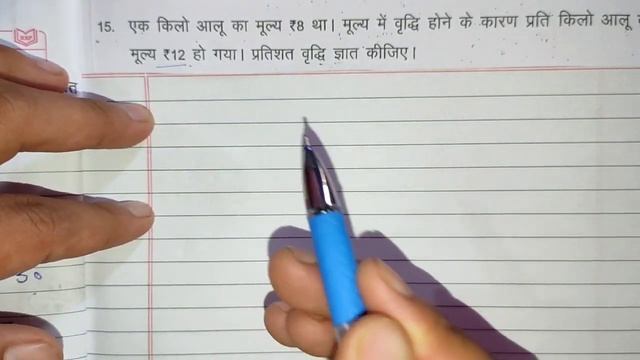 15. एक किलो आलू का मूल्य ₹8 था। मूल्य में वृद्धि होने के कारण प्रति किलो आलू
मूल्य ₹12 हो गया। प्रतिशत वृद्धि ज्ञात कीजिए।